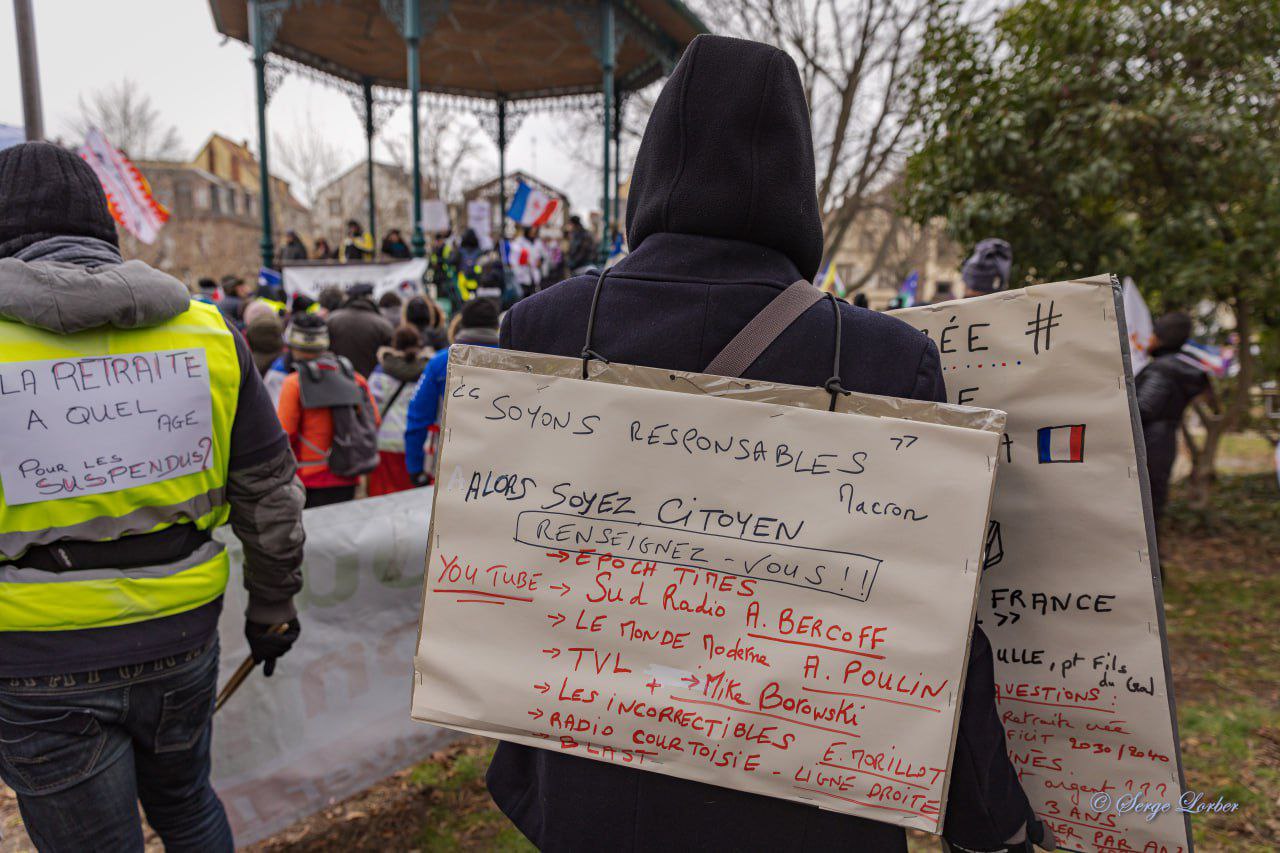 LA RETRAITE
A QUEL AGE
POUR LES
SUSPENDUS?
“ SOYONS RESPONSABLES ”
Macron
ALORS SOYEZ CITOYEN
RENSEIGNEZ-VOUS !!
→ EPOCH TIMES
YOU TUBE → Sud Radio A. BERCOFF
→ LE MONDE Moderne A. POULIN
→ TVL + → Mike Borowski
→ LES INCORRECTIBLES E. MORILLOT
→ RADIO COURTOISIE - LIGNE DROITE
→ BLAST
ÉE #
E
FRANCE
>>
ULLE, pt Fils
du Gal
QUESTIONS:
Retraite
FICIT 2030/2040
INES.
argent ???
3 ANS.
PAR
© Serge Lorber